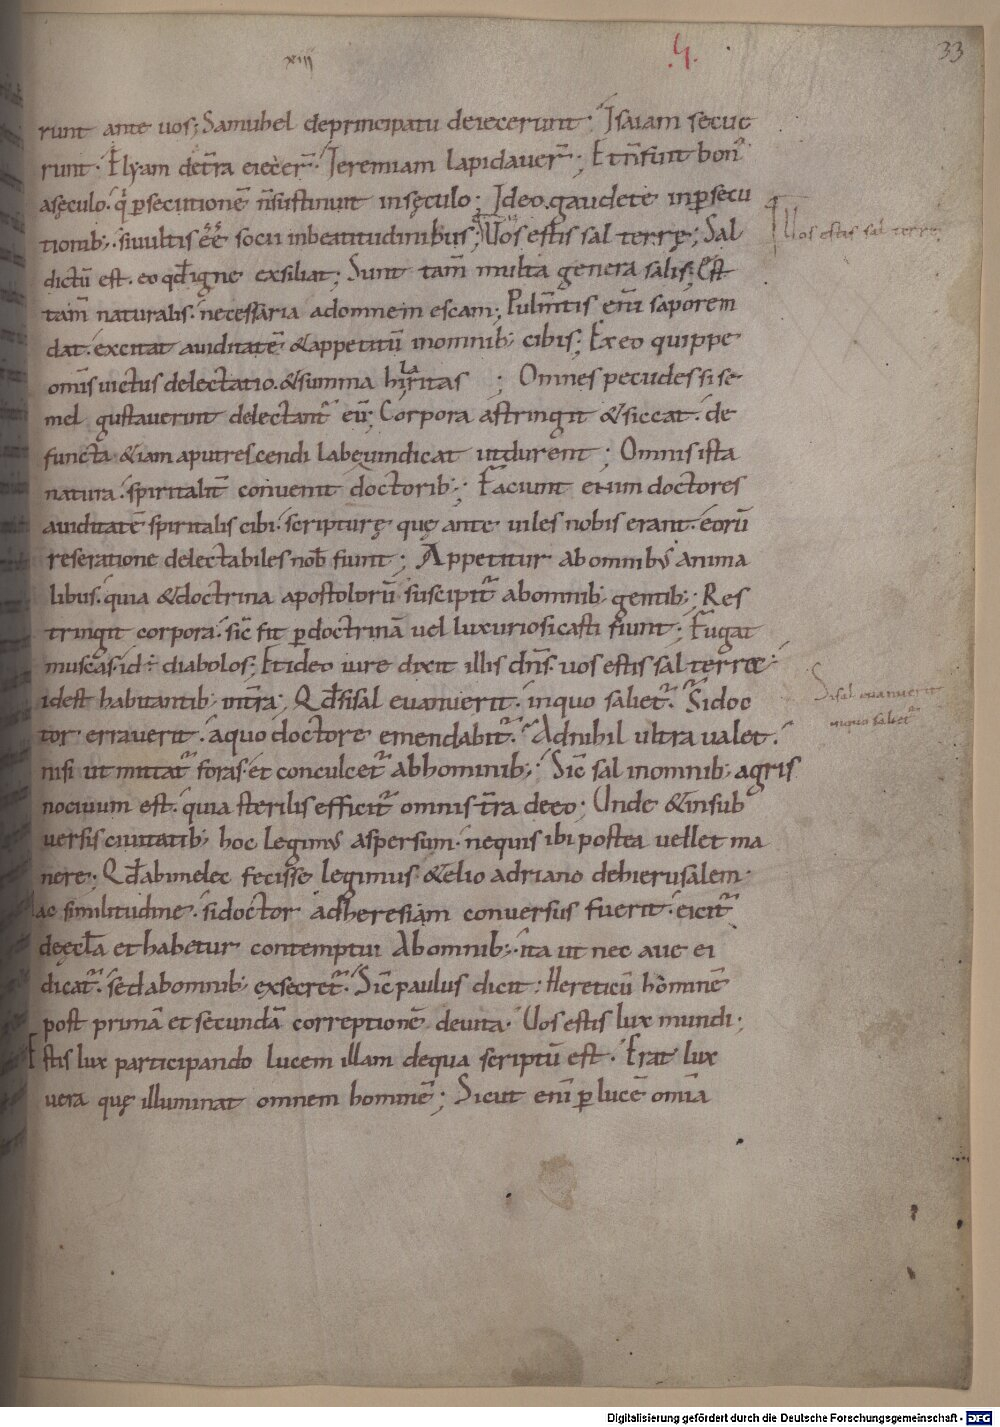 xiiii
.4.
33
runt ante uos; Samuhel deprincipatu deiecerunt· Isaiam secue
runt· Elyam det̄ra eiecer̄· Ieremiam lapidauer̄; Et n̄ sunt boni
asęculo· q' p̱secutionē n̄sustinunt insęculo; Ideo gaudete inp̱secu
tionib;· siuultis eē̄ socii inbeatitudinibus; Uos estis sal terrę; Sal
dictū est· eo qd̄ igne exsiliat; Sunt tam̄ multa genera salis; Est
tam̄ naturalis· necessaria adomnem escam; Pulm̄tis enī saporem
dat· excitat auiditatē &appetitū inomnib; cibis; Ex eo quippe
omīs uictus delectatio· &summa hilaritas; Omnes pecudes si se
mel gustauerint delectant̄ eū; Corpora astringit &siccat· de
functa &iam aputrescendi labe uindicat utdurent; Omnis ista
natura· spiritalit̄ conuenit doctorib;· Faciunt enim doctores
auiditatē spiritalis cibi· scripturę quę ante uiles nobis erant· eorū
reseratione delectabiles nob̄ fiunt; Appetitur abomnibus anima
libus· quia &doctrina apostolorū suscipit̄ abomnib; gentib;· Res
tringit corpora· sic̄ fit p̱doctrinā uel luxuriosi casti fiunt; Fugat
muscas· id ÷ diabolos; Et ideo iure dixit illis dn̄s· uos estis sal terrae·
idest habitantib; int̄ra; Qd̄ si sal euanuerit· inquo saliet̄· Si doc
tor errauerit· aquo doctore emendabit̄· Adnihil ultra ualet·
nisi ut mittat̄ foras· et conculcet̄ abhominib;· Sic̄ sal inomnib; agris
nociuum est· quia sterilis efficit̄ omnis t̄ra deeo; Unde &insub
uersis ciuitatib; hoc legimus aspersum· nequis ibi postea uellet ma
nere; Qd̄ abimelec fecisse legimus &elio adriano dehierusalem·
ac similitudine· sidoctor adheresiam conuersus fuerit· eicit̄
deęcl̄a et habetur contemptui Abomnib;· ita ut nec aue ei
dicat̄· sed abomnib; exsecret̄· Sic̄ paulus dicit: Hereticū hominē
post primā et secundā correptionē deuita· Uos estis lux mundi;
Estis lux participando lucem illam dequa scriptū est· Erat lux
uera quę illuminat omnem hominē; Sicut enī p̱ lucē omīa
Uos estis sal terre
Si sal euanuerit
inquo saliet̄
Digitalisierung gefördert durch die Deutsche Forschungsgemeinschaft - DFG